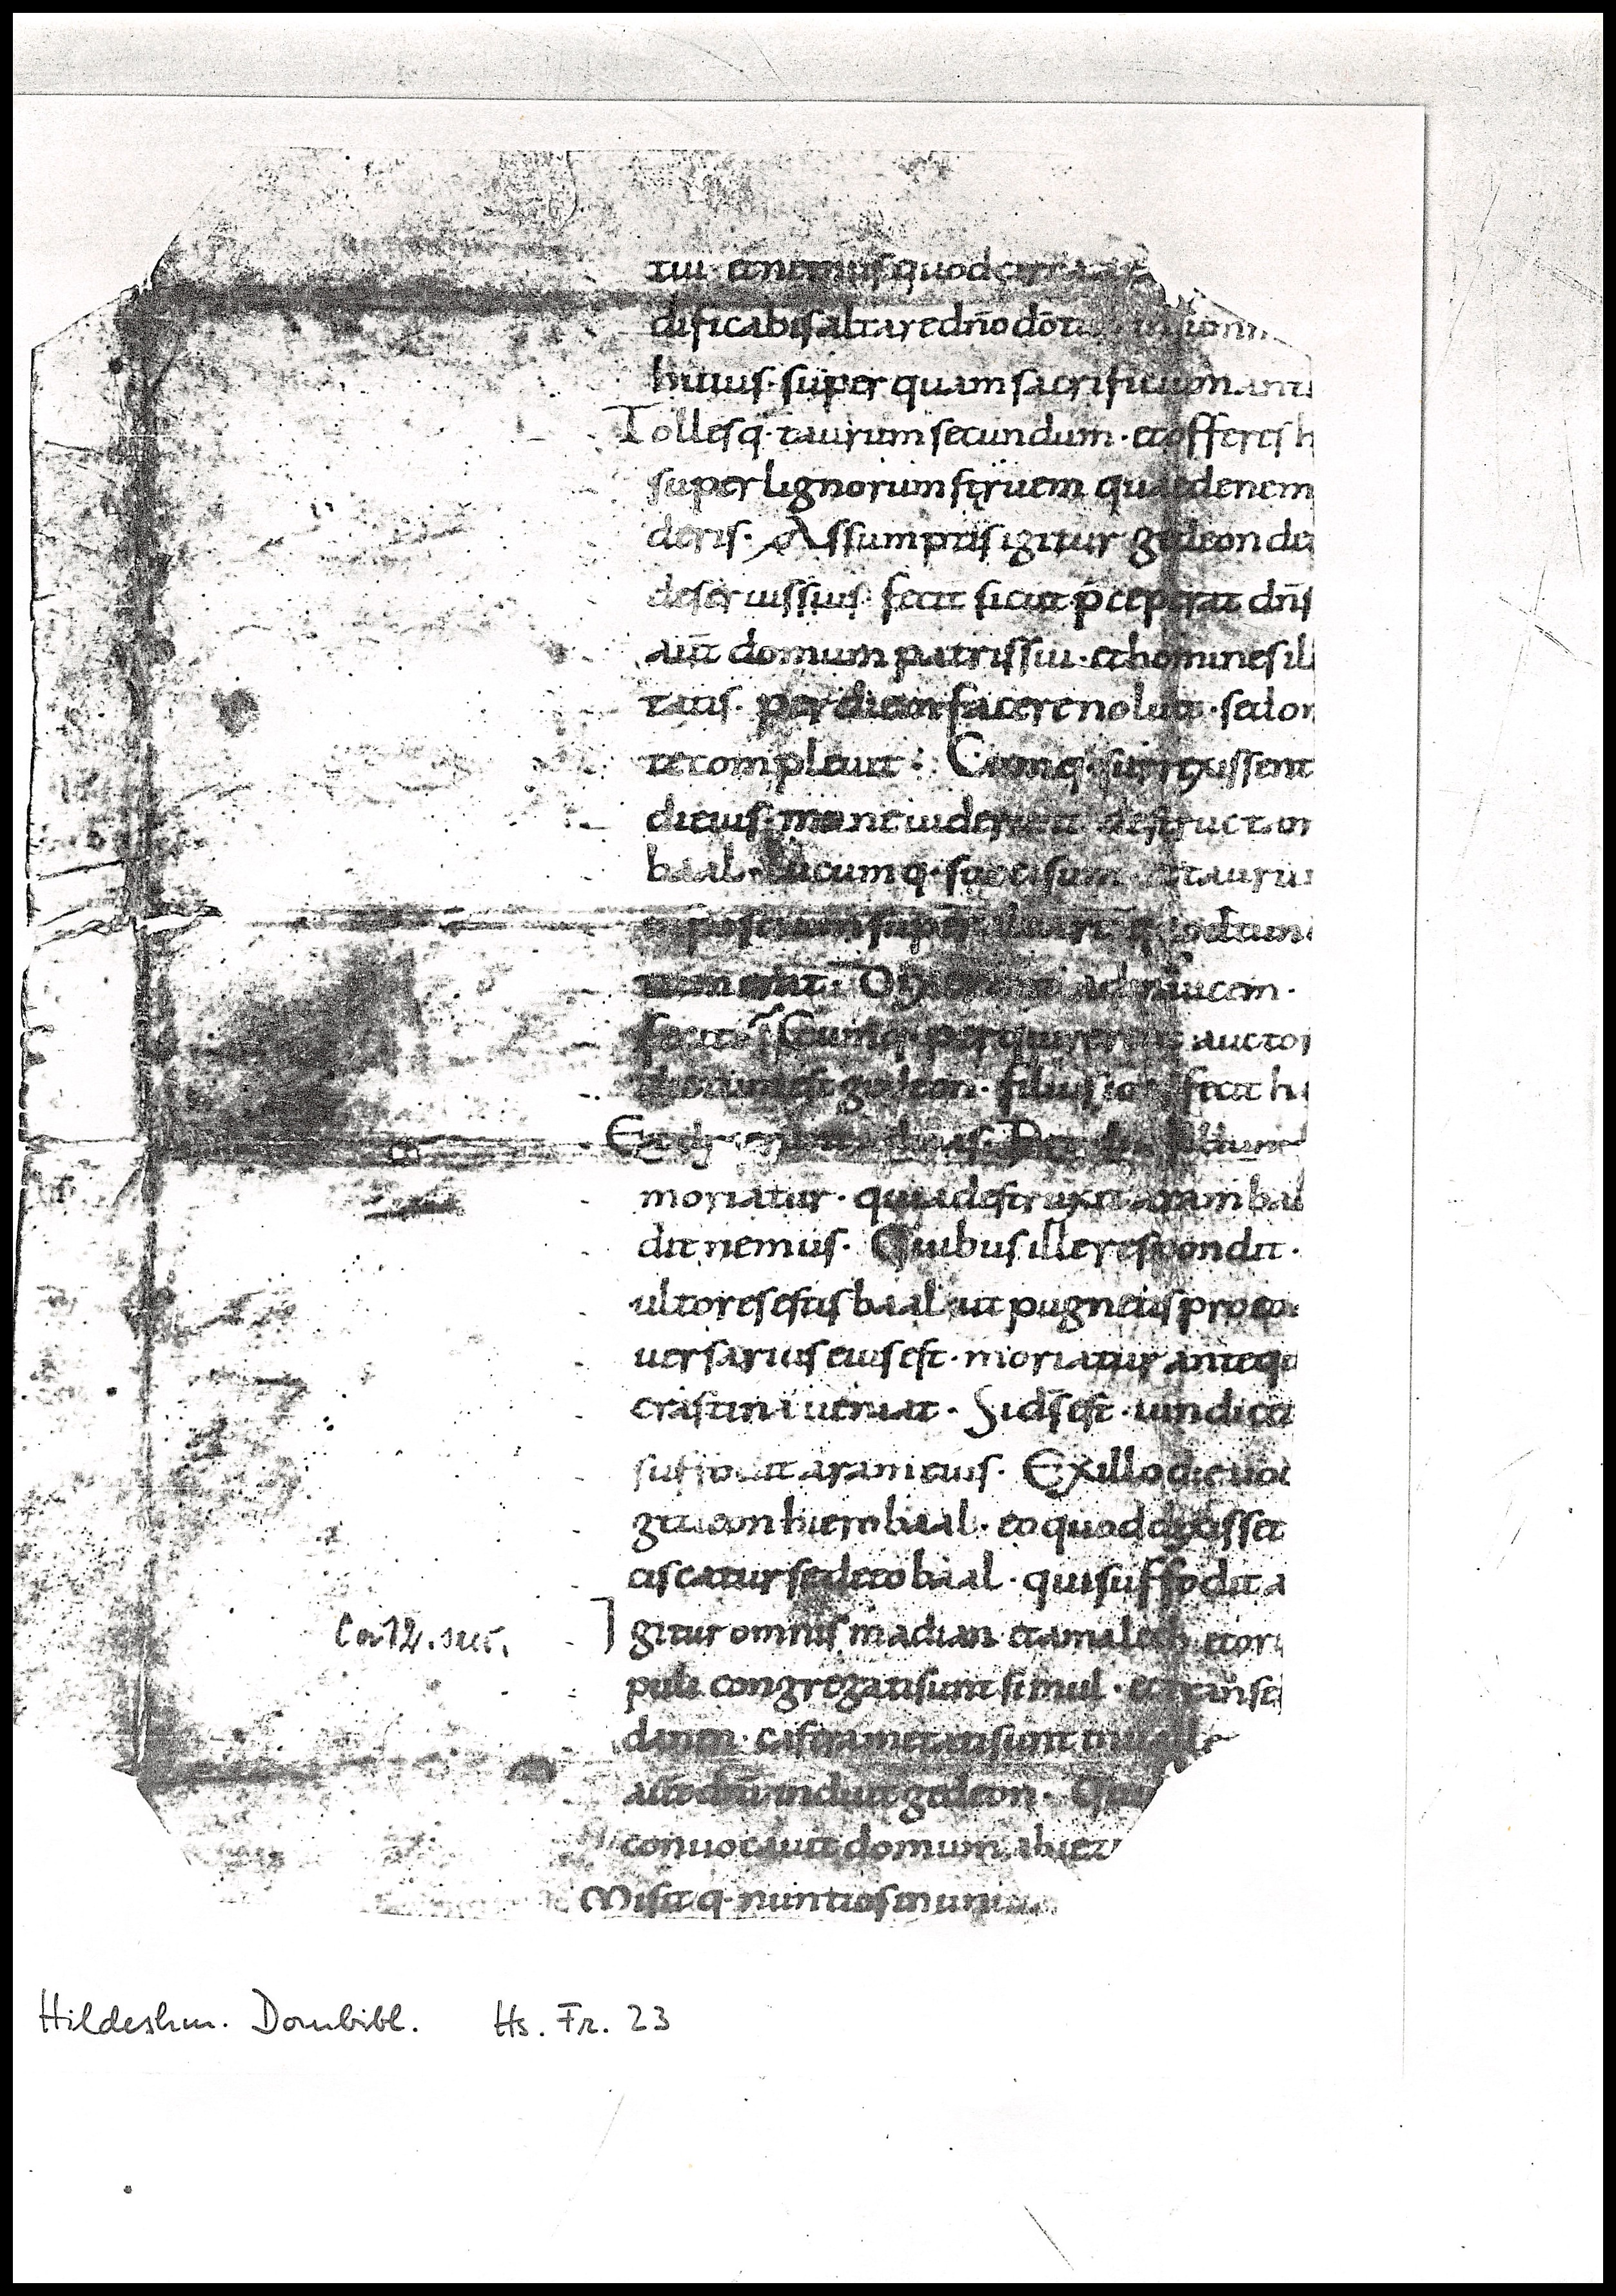 tui et nemus quod circa ar
dificabis altare dño dõ tuo in summ
huius · super quam sacrificium ante
Tollesq · taurum secundum · et offeres h
super lignorum struem quae de nem
deris · Assumptis igitur gedeon de
de seruis suis · fecit sicut p̄ceperat dñs
aūt domum patris sui · et homines ill
tatis · per diem facere noluit · sed om
te compleuit · Cumq · surrexissent
di eius · mane uiderunt destructam
baal · lucumq · succisum · et tauru
positum super altare q
erat · Dixerunt ad inuicem ·
fecit Cumq · perquirerent auctor
gedeon · filius ioas fecit h
Et
moriatur · quia destruxit aram baal
dit nemus · Quibus ille respondit ·
ultores estis baal ut pugnetis pro eo
uersarius eius est · moriatur anteq
crastina ueniat · Si dš est · uindicet
suffodit aram eius · Ex illo die uoc
gedeon hierobaal · eo quod dixisset
ciscatur se de eo baal · qui suffodit a
Igitur omnis madian et amalech et ori
puli congregati sunt simul · et transe
danen · castrametati sunt in uall
aūt dñi induit gedeon · Qui
conuocauit domum abiez
Misitq · nuntios in uniu
Hildeshm. Dombibl. Hs. Fr. 23